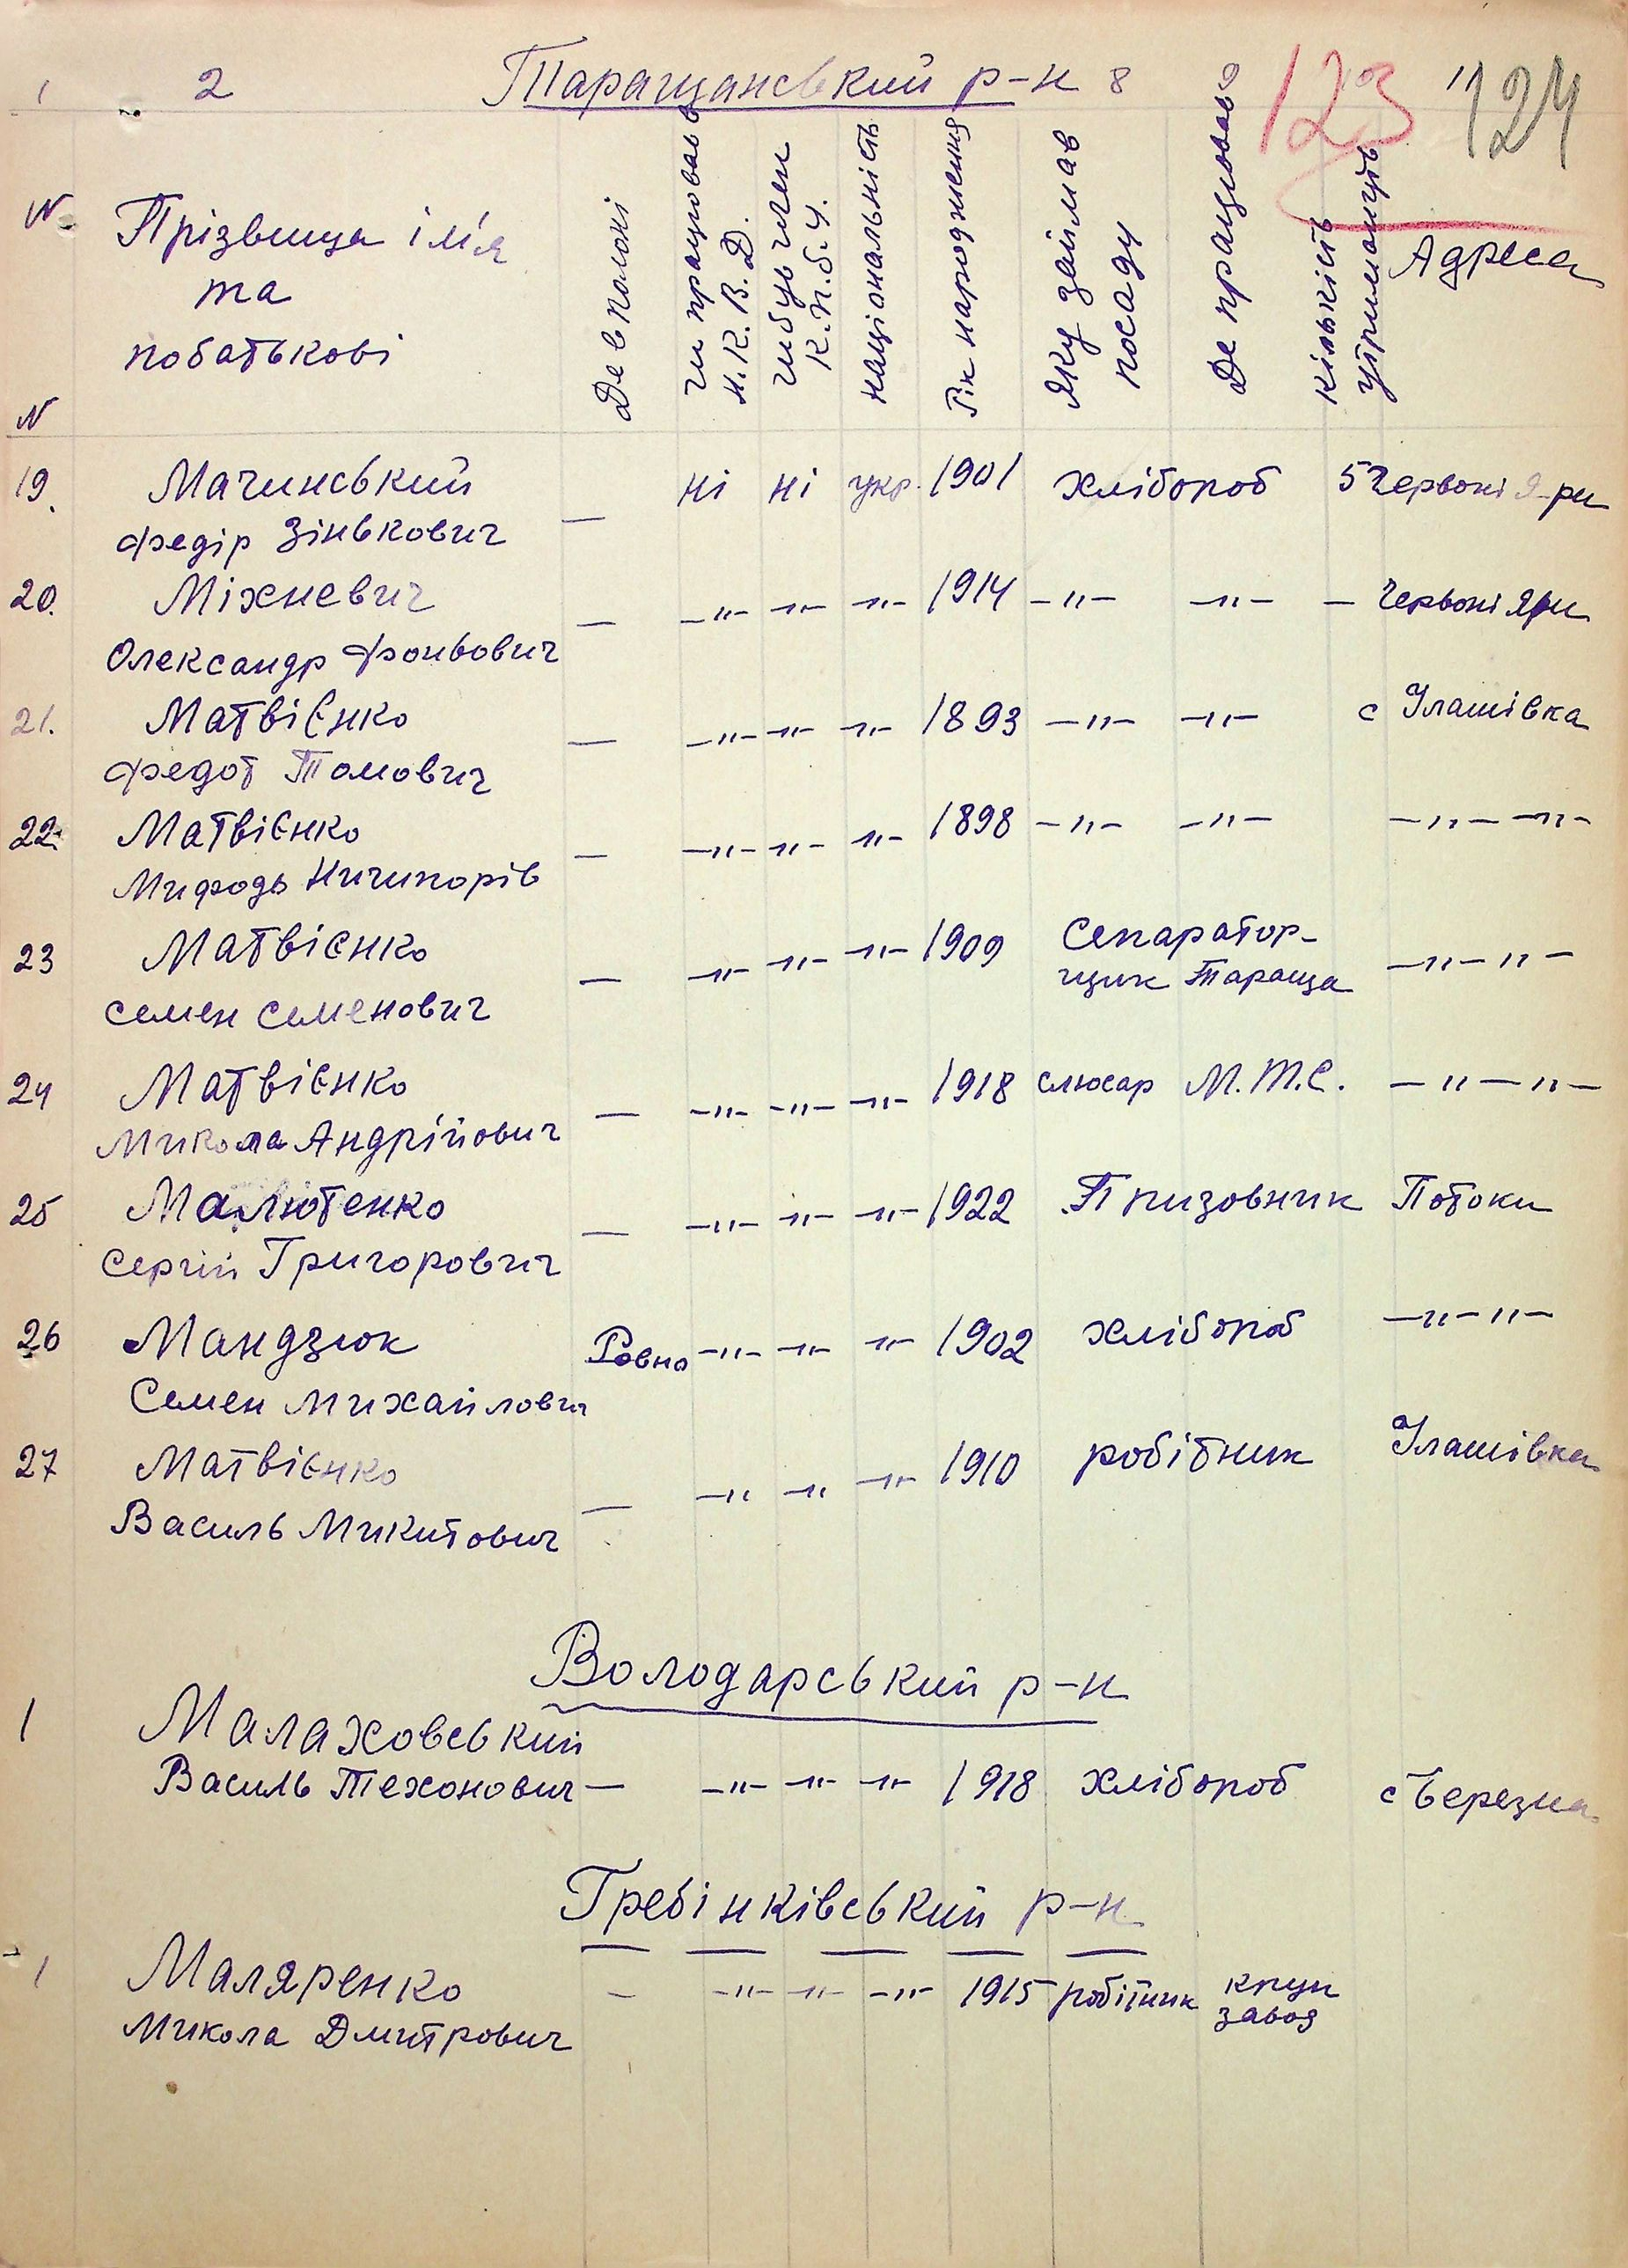 1 2 Таращанський р-н 8 9 123 11 124
№ Прізвища ім'я та побатькові
Де в полоні
чи працював в Н.К.В.Д.
чи був член К.П.б.У.
національність
Рік народження
Яку займав посаду
Де працював
кількість утриманців
Адреса
N
19. Мачинський — ні ні укр. 1901 хлібороб 5 Червоні Яри
Федір Зінькович
20. Міхневич — -"- -"- -"- 1914 -"- -"- — Червоні Яри
Олександр
21. Матвієнко — -"- -"- -"- 1893 -"- -"- с Улашівка
Федот Томович
22. Матвієнко — -"- -"- -"- 1898 -"- -"- -"-"-
Мифодь Ничипорів
23 Матвієнко — -"- -"- -"- 1909 Сепаратор-
щик Тараща -"-"-
Семен Семенович
24 Матвієнко — -"- -"- -"- 1918 слюсар М.Т.С. -"-"-
Микола Андрійович
25 Малютенко — -"- -"- -"- 1922 Призовник Потоки
Сергій Григорович
26 Мандзюк Ровно -"- -"- -"- 1902 хлібороб -"-"-
Семен Михайлович
27 Матвієнко — -"- -"- -"- 1910 робітник Улашівка
Василь Микитович
Володарський р-н
1 Малаховський
Василь Техонович — -"- -"- -"- 1918 хлібороб с Березна
Гребінківський р-н
1 Маляренко - -"- -"- -"- 1915 робітник
завод
Микола Дмитрович